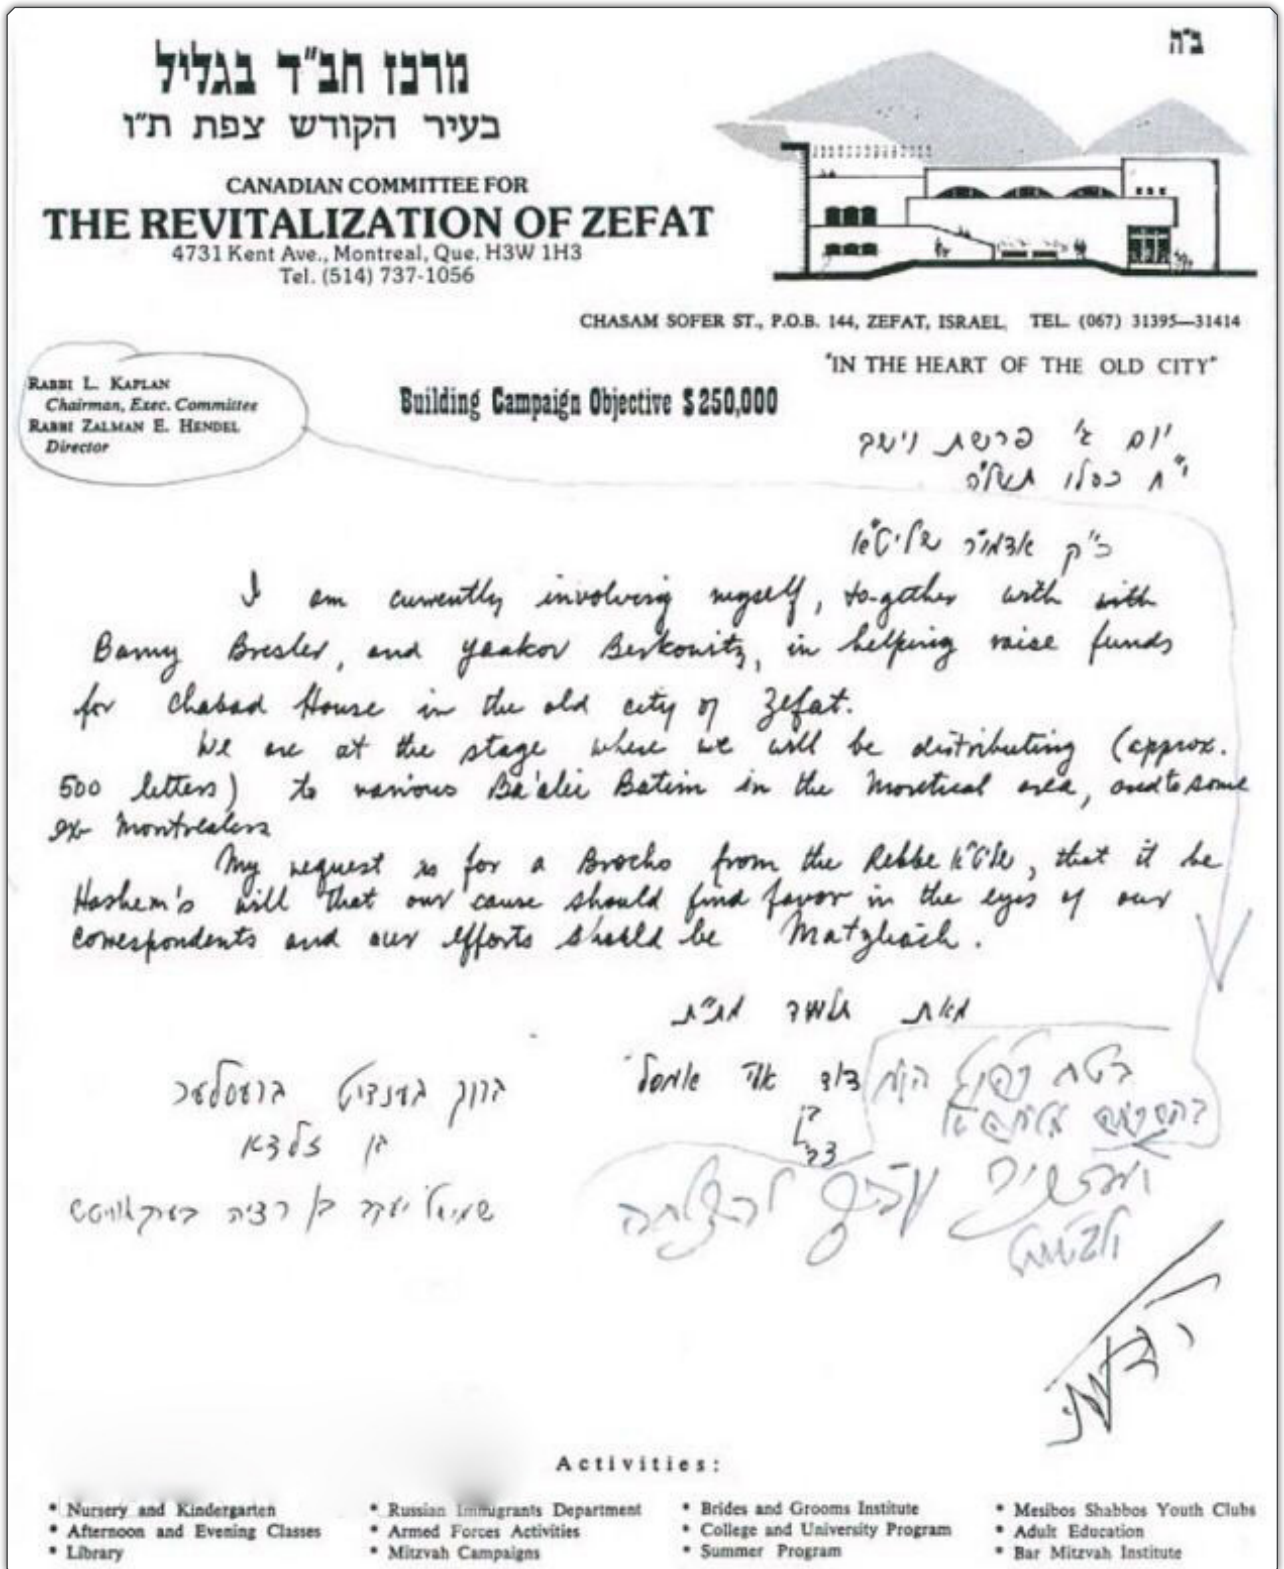 ב"ה
מרכז חב"ד בגליל
בעיר הקודש צפת ת"ו
CANADIAN COMMITTEE FOR
THE REVITALIZATION OF ZEFAT
4731 Kent Ave., Montreal, Que. H3W 1H3
Tel. (514) 737-1056
CHASAM SOFER ST., P.O.B. 144, ZEFAT, ISRAEL, TEL. (067) 31395—31414
"IN THE HEART OF THE OLD CITY"
RABBI L. KAPLAN
Chairman, Exec. Committee
RABBI ZALMAN E. HENDEL
Director
Building Campaign Objective $250,000
יום ג' פרשת וישב
י"ח כסלו תשל"ה
כ"ק אדמו"ר שליט"א
I am currently involving myself, together with with
Barny Bresler, and Yaakov Berkowitz, in helping raise funds
for Chabad House in the old city of Zefat.
We are at the stage where we will be distributing (approx.
500 letters) to various Ba'alei Batim in the Montreal area, and to some
ex-Montrealers
My request is for a Brocho from the Rebbe שליט"א, that it be
Hashem's will that our cause should find favor in the eyes of our
correspondents and our efforts should be Matzliach.
מאת תלמיד
דוד
בן
ברוך בענדיט ברעסלער
בן זלדא
שמואל יעקב בן רציה בערקאוויטש
בטח
להצלחה
Activities:
* Nursery and Kindergarten
* Afternoon and Evening Classes
* Library
* Russian Immigrants Department
* Armed Forces Activities
* Mitzvah Campaigns
* Brides and Grooms Institute
* College and University Program
* Summer Program
* Mesibos Shabbos Youth Clubs
* Adult Education
* Bar Mitzvah Institute